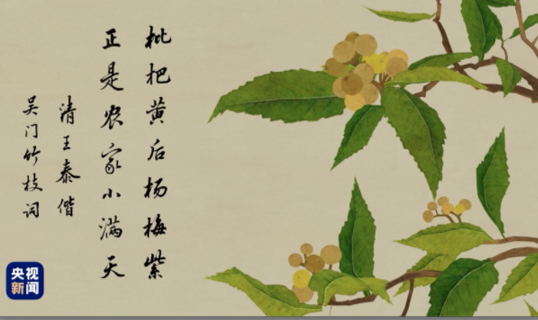 枇杷黄后杨梅紫
正是农家小满天
清 王泰偕
吴门竹枝词
央视
新闻